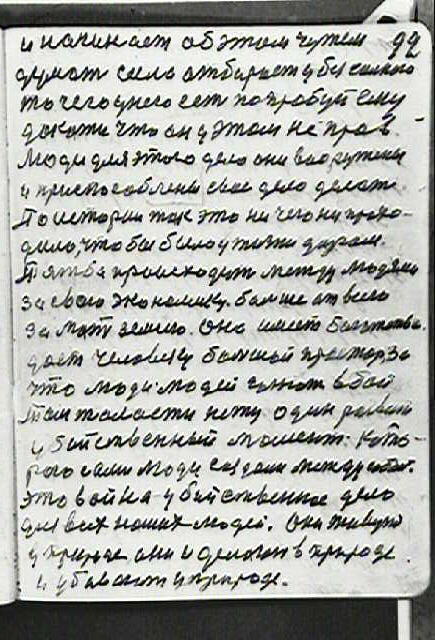 и начинает об этом чутем 99
думат сила отбирает у безсилного
то чего у него ест попробуй ему
докажи что он у этом не прав.
Люди для этого дело они вооружены
и приспособлены свое дело делат.
По истории так это ни чего ни прохо-
дило, чтобы было у жизни даром.
Тятба происходит между людями
за свою экономику. болше от всего
за мат землю. Она имеет богатства.
дает человеку болшой простор, за
что люди людей гонют в бой
там жалости нету один
убийственный момент. Кото-
рого сами люди создали между собой.
Это война убийственное дело
для всех наших людей. Они живут
у природе они и делают в природе
и убивают у природе.